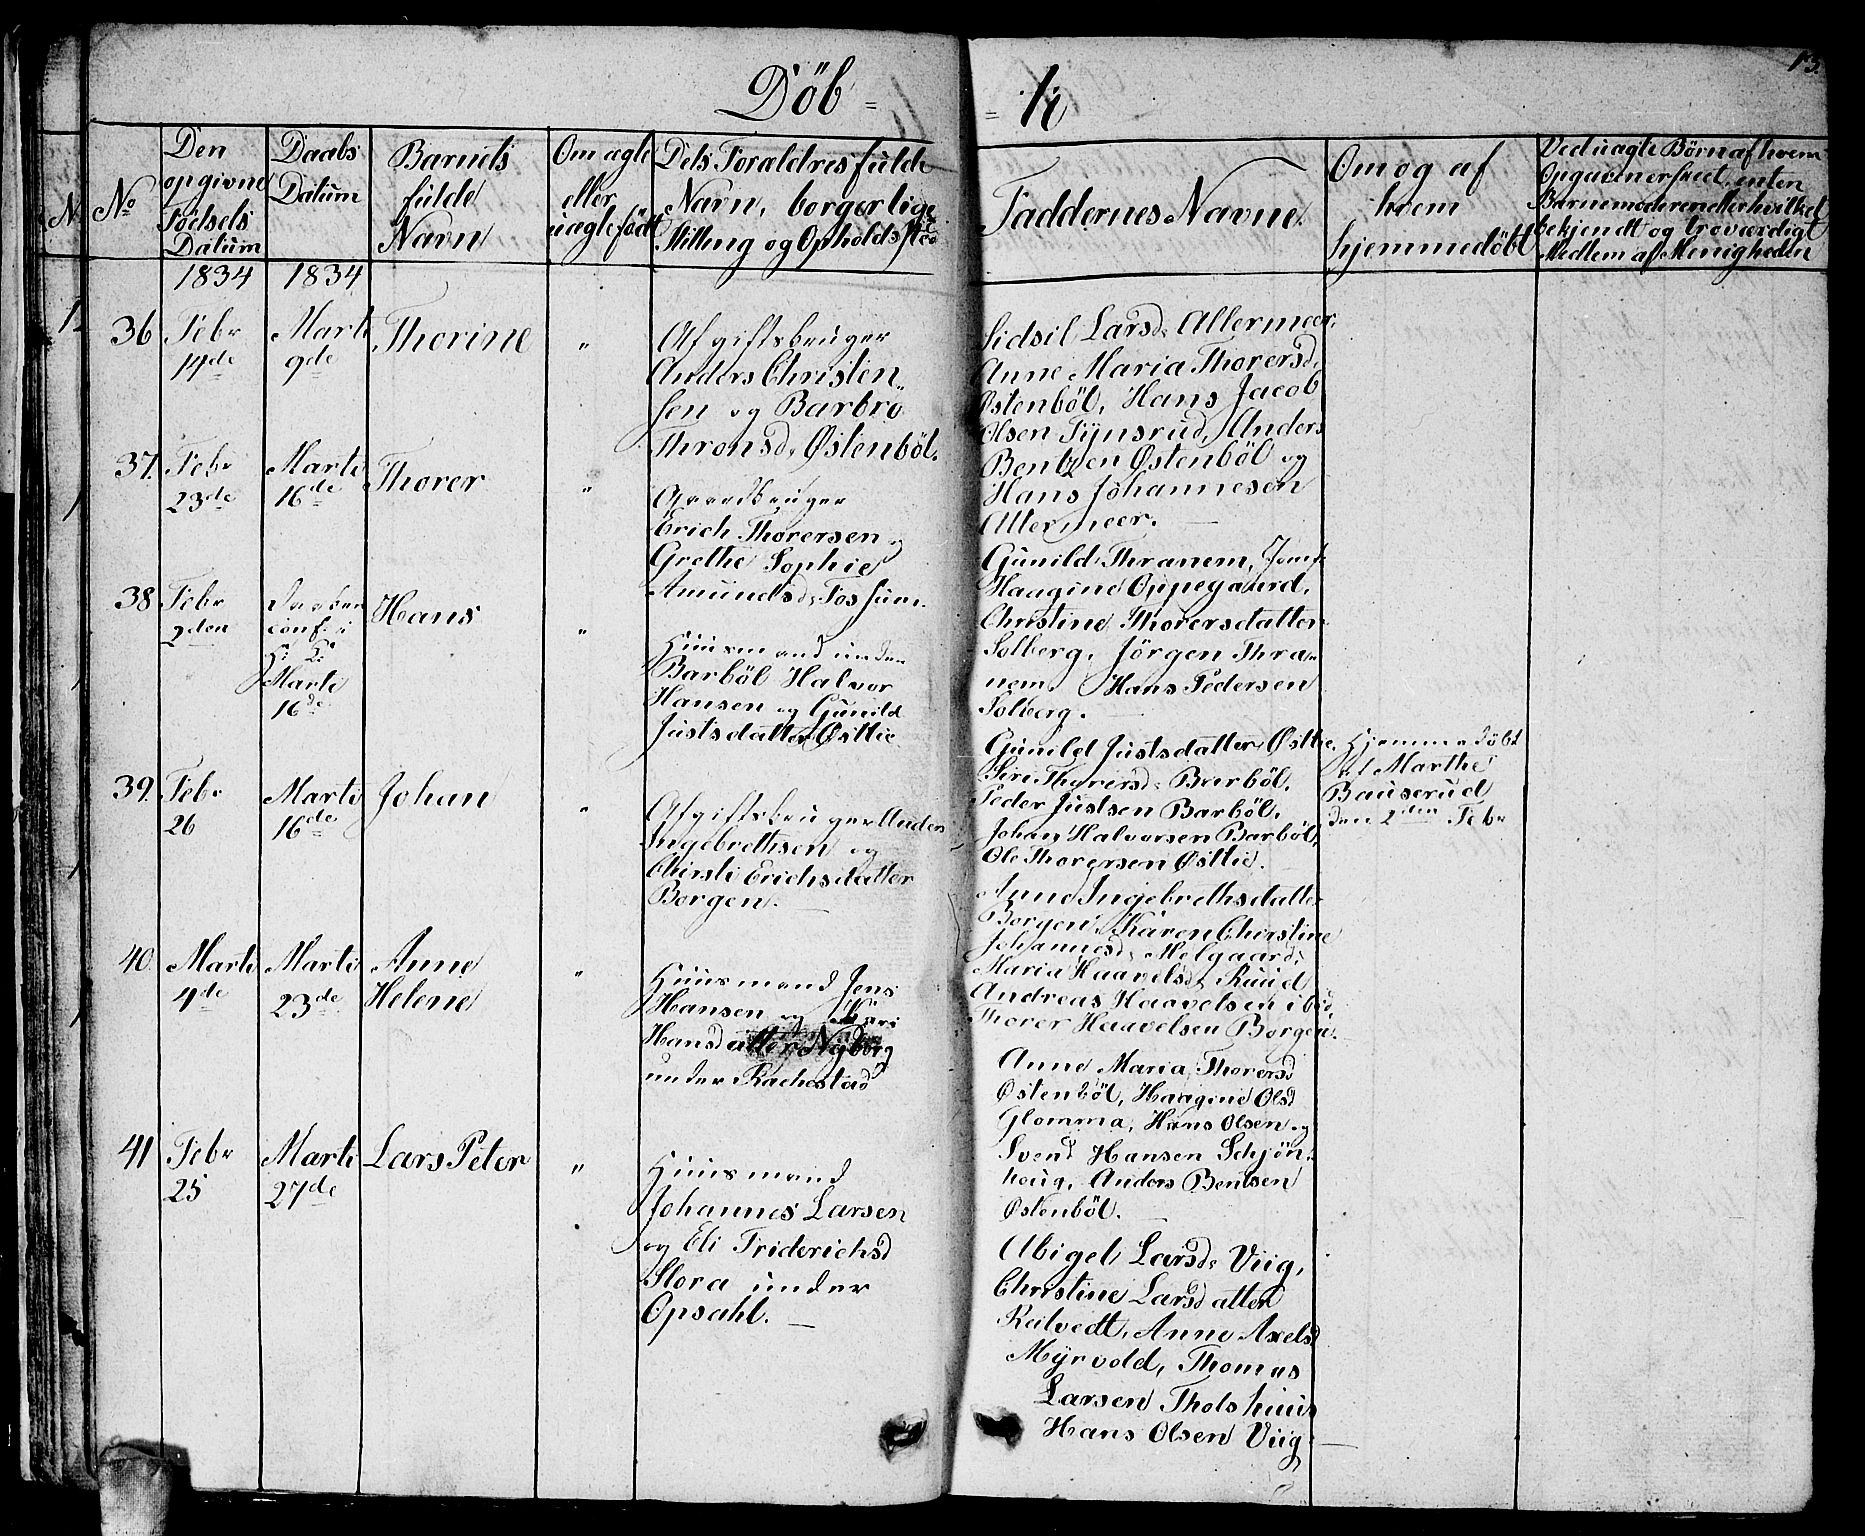 Döb =
= te
13.
No
Den opgivne Födsels Datum
Daabs Datum
Barnets fulde Navn
Om ægte eller uægte födt
Dets Foræld​res fulde Navn, borgerlige Stilling og Opholdssted
Faddernes Navne.
Om og af hvem hjemmedöbt
Ved uægte Børn af hvem Opgaven er skeet, enten Barnemoderen eller hvilket bekjendt og troværdigt Medlem af Menigheden
1834
1834
36
Febr
14de
Marti
9de
Thorine
"
Afgiftsbruger
Anders Christen
sen og Barbro
Thronsd. Østenböl.
Sidsil Larsd. Allermoer.
Anne Maria Thorersd.
Østenböl, Hans Jacob
Olsen Tynsrud, Anders
Bentzen Østenböl og
Hans Johannesen
Allermoer.
37.
Febr
23de
Marti
16de
Thorer
"
Gaardbruger
Erich Thorersen og
Grethe Sophie
Amundsd. Fossum.
Gunild Thranem, Jomf.
Haagine Oppegaard,
Christine Thorersdatter
Solberg, Jörgen Thra-
nem, Hans Pedersen
Solberg.
38
Febr
2den
Daaben
conf: i
Marti
16de
Hans
"
Huusmand under
Barböl Halvor
Hansen og Gunild
Justsdatter Østtie
Gunild Justsdatter Østtie.
Siri Thorersd. Barböl,
Peder Justsen Barböl,
Johan Halvorsen Barböl,
Ole Thorersen Østtie.
Hjemmedöbt
af Marthe
Bauserud
den 2den Febr
39.
Febr
26
Marti
16de
Johan
"
Afgiftsbruger Anders
Ingebrethsen og
Chirsti Erichsdatter
Borgen.
Anne Ingebrethsdatter
Borgen, Karen Christine
Johannesd. Melgaard,
Maria Haavelsd. Ruud
Andreas Haavelsen ibid
Thorer Haavelsen Borgen.
40.
Marti
4de
Marti
23de
Anne
Helene
"
Huusmand Jens
Hansen og Kari
Hansdatter Nyborg
under Rachestad
Anne Maria Thorersd
Østenböl, Haagine Olsd
Glomma, Hans Olsen og
Svend Hansen Schjön-
houg, Anders Bentsen
Østenböl.
41
Febr
25
Marti
27de
Lars Peter
"
Huusmand
Johannes Larsen
og Eli Friderichsd
Slora under
Opsahl.
Abigel Larsd. Viig,
Christine Larsdatter
Reilvedt, Anne Axelsd
Myrvold, Thomas
Larsen Tholshuus
Hans Olsen Viig